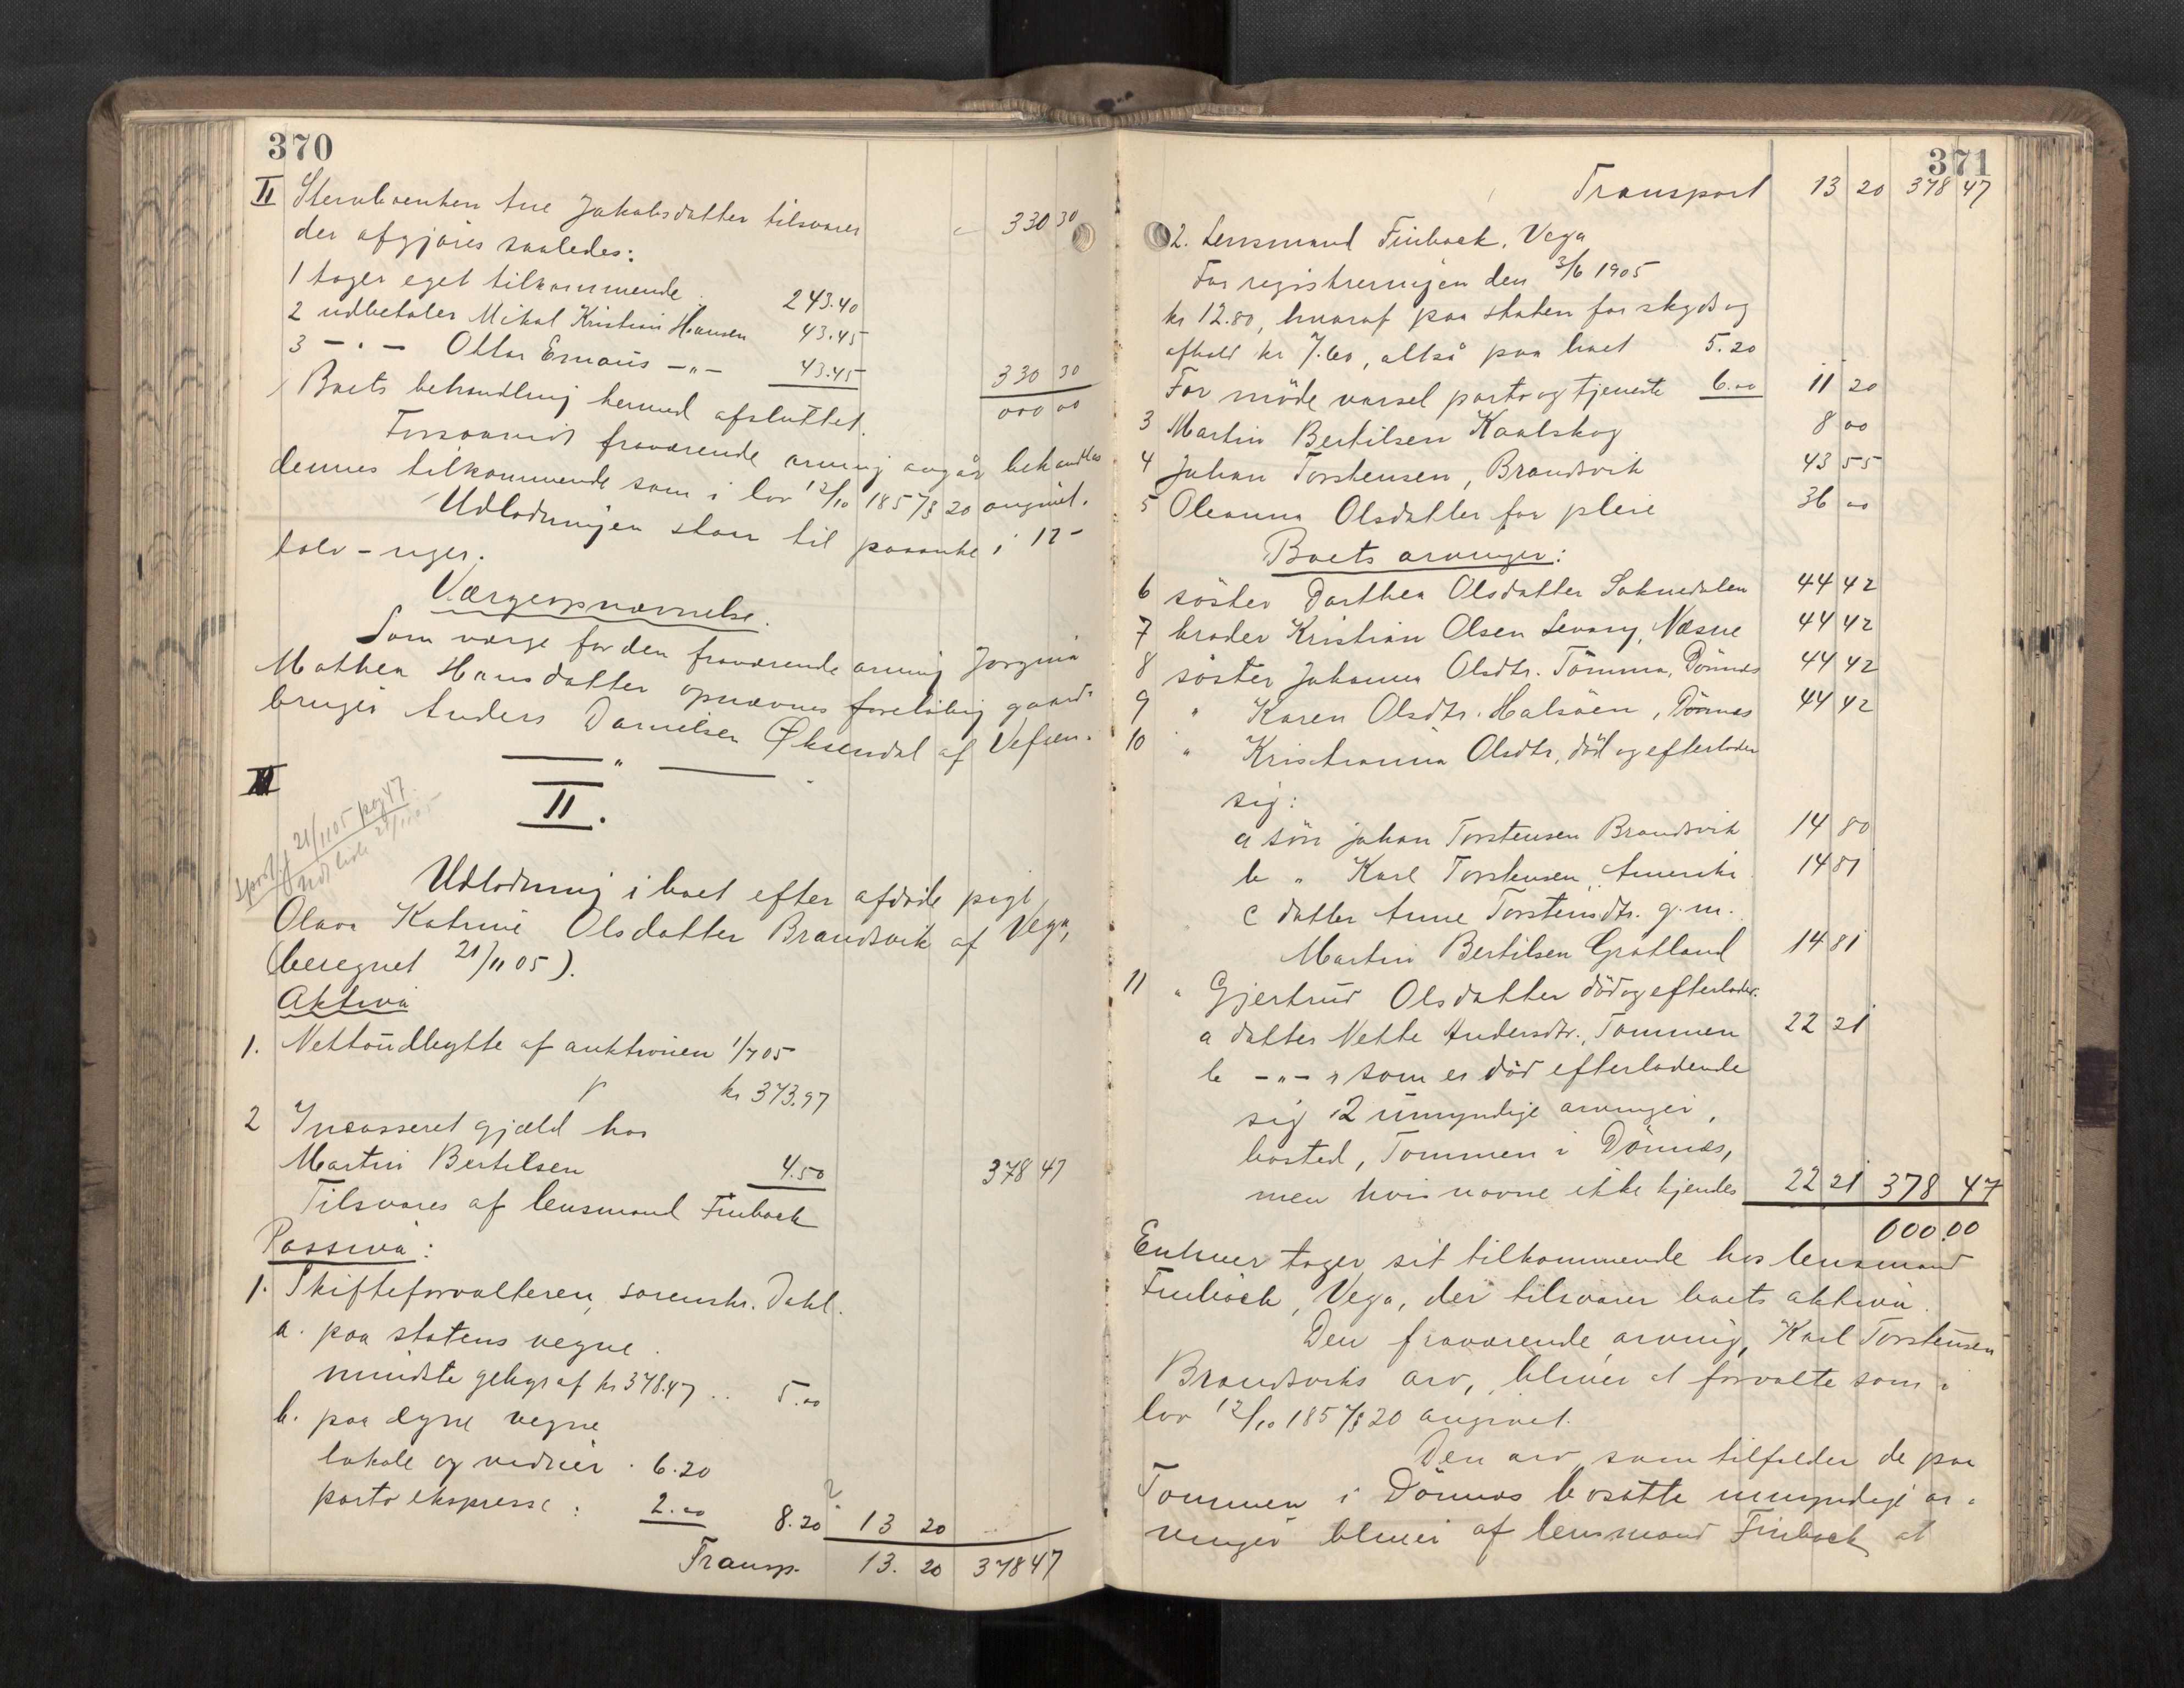 370
II Stervboenken Ane Jakobsdatter tilsvarer 330 30
der afgjøres saaledes:
1 tager eget tilkommende 243.40
2 udbetaler Mikal Kristian Hansen 43.45
3 -„- Ottar Emaus -„- 43.45 330 30
Boets behandling hermed afsluttet. 000 00
Forsaavidt fraværende arving angår behandles
dennes tilkommende som i lov 12/10 1857 § 20 angivet.
Udlodningen staar til paaanke i 12-
tolv-uger.
Værgeopnævnelse.
Som værge for den fraværende arving Jørgine
Mathea Hansdatter opnævnes foreløbig gaard-
bruger Anders Danielsen Øksendal af Vefsen.
II.
21/11 05 pag 47
Udlodning i boet efter afdøde pige
Olava Katrine Olsdatter Brandsvik af Vega,
(beregnet 21/11 05).
Aktiva
1. Nettoudbytte af auktionen 1/7 05
kr 373.97
2 Incasseret gjæld hos
Martin Bertilsen 4.50 378 47
Tilsvares af lensmand Finback
Passiva:
1. Skifteforvalteren, sorenskr. Dahl.
a. paa statens vegne
mindste gebyr af kr 378.47 .. 5.00
b. paa egne vegne
lokale og vidner . 6.20
porto ekspresse : 2.00 8.20 13 20
Transp. 13. 20 378 47
371
Transport 13 20 378 47
2. Lensmand Finback, Vega
For registreringen den 3/6 1905
kr 12.80, hvoraf paa staten for skyds og
ophold kr 7.60, altså paa boet 5.20
For møde varsel porto og tjeneste 6.00 11 20
3 Martin Bertilsen Kaalskog 8 00
4 Johan Torstensen, Brandsvik 43 55
5 Oleanna Olsdatter for pleie 36 00
Boets arvinger:
6 søster Dorthea Olsdatter Solmedalen 44 42
7 broder Kristian Olsen Levang, Næsne 44 42
8 søster Johanna Olsdtr. Tømma, Dønnes 44 42
9 " Karen Olsdtr. Halsøen, Dønnes 44 42
10 " Kristianna Olsdtr, død og efterlader
sig:
a søn Johan Torstensen Brandsvik 14 80
b " Karl Torstensen, Amerika 14 81
c datter Anne Torstensdtr. g. m.
Martin Bertilsen Grøtland 14 81
11 " Gjertrud Olsdatter død og efterlader.
a datter Nette Andersdtr., Tommen 22 21
b -„- " som er død efterladende
sig 2 umyndige arvinger,
bosted, Tommen i Dønnes,
men hvis navne ikke kjendes 22 21 378 47
000.00
Enhver tager sit tilkommende hos lensmand
Finback, Vega, der tilsvarer boets aktiva.
Den fraværende arving, Karl Torstensen
Brandsviks arv, bliver at forvalte som i
lov 12/10 1857 § 20 angivet.
Den arv som tilfalder de paa
Tommen i Dønnes bosatte umyndige ar-
vinger bliver af lensmand Finback at